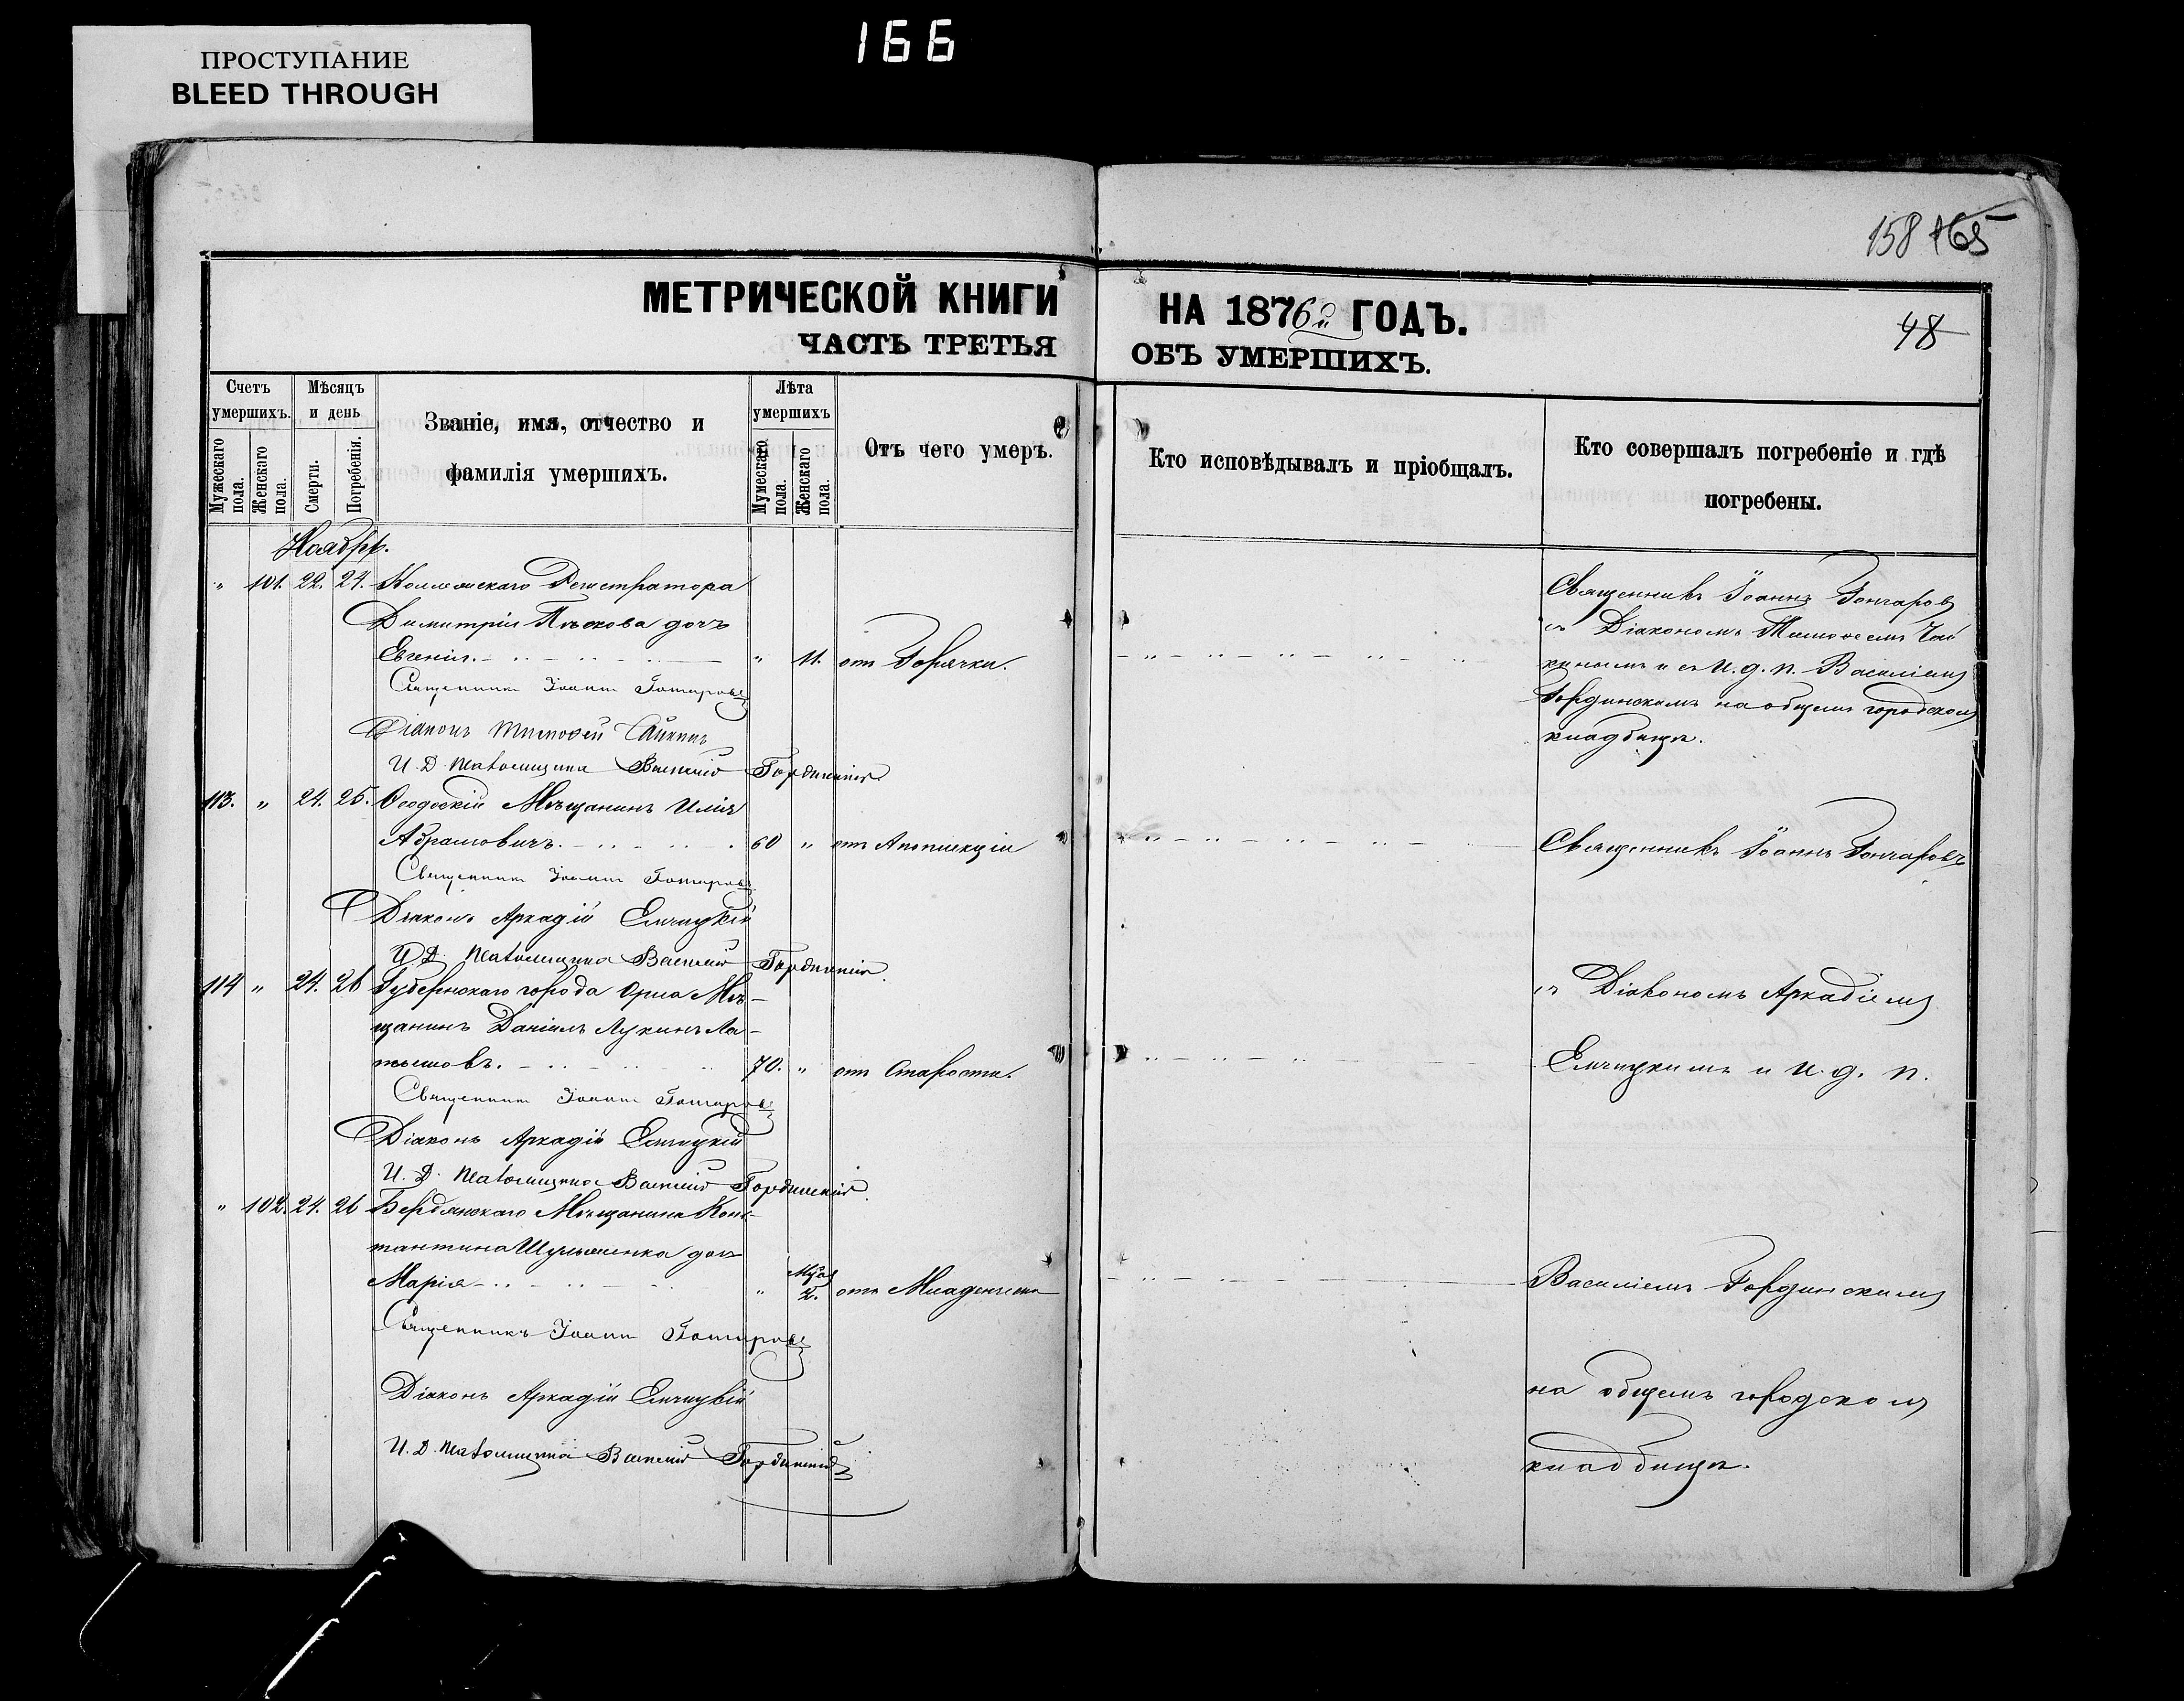 ПРОСТУПАНИЕ
BLEED THROUGH
166
158 165
МЕТРИЧЕСКОЙ КНИГИ
НА 1876й ГОДЪ.
48
ЧАСТЬ ТРЕТЬЯ
ОБЪ УМЕРШИХЪ.
Счетъ умершихъ.
Мужескаго пола.
Женскаго пола.
Мѣсяцъ и день
Смерти.
Погребенія.
Званіе, имя, отчество и
фамилія умершихъ.
Лѣта умершихъ
Мужескаго пола.
Женскаго пола.
Отъ чего умеръ.
Кто исповѣдывалъ и пріобщалъ.
Кто совершалъ погребеніе и гдѣ
погребены.
Ноябрь.
" 101. 22. 24. Коллежскаго Регистратора
Димитрія Пѣскова дочь
Евгенія. " 11. отъ Горячки.
Священникъ Іоаннъ Гончаровъ
Діаконъ Тимофей Чайкинъ
И. Д. Псаломщика Василій Гординскій
Священникъ Іоаннъ Гончаровъ
съ Діакономъ Тимофеемъ Чай
кинымъ и съ И. д. п. Василіемъ
Гординскимъ на общемъ городскомъ
кладбищѣ.
113. " 24. 25. Ѳеодоскій Мѣщанинъ Илія
Абрамовичъ. 60 " отъ Апоплекціи
Священникъ Іоаннъ Гончаровъ
Діаконъ Аркадій
И. Д. Псаломщика Василій Гординскій.
Священникъ Іоаннъ Гончаровъ
114 " 24. 26 Губернскаго города Орла Мѣ-
щанинъ Даніилъ Лукинъ Ла-
тышовъ. 70. " отъ Старости.
Священникъ Іоаннъ Гончаровъ
Діаконъ Аркадій
И. Д. Псаломщика Василій Гординскій.
съ Діакономъ Аркадіемъ
и И. д. п.
" 102. 24. 26 Бердянскаго Мѣщанина Конс-
тантина дочь
Марія " 2. отъ Младенческ
Священникъ Іоаннъ Гончаровъ
Діаконъ Аркадій
И. Д. Псаломщика Василій Гординскій
Василіемъ Гординскимъ
на общемъ городскомъ
кладбищѣ.